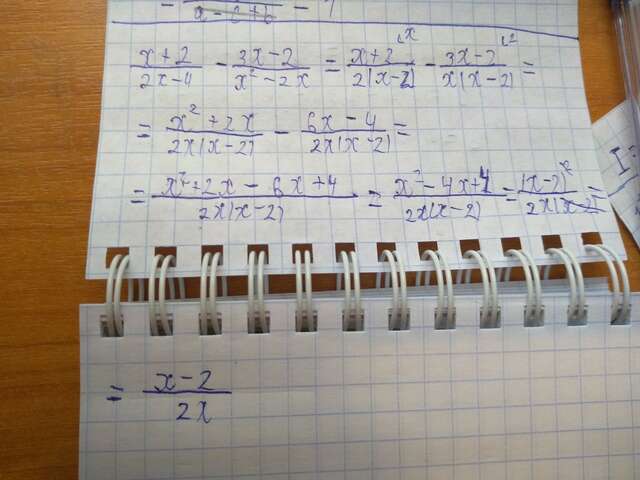 a - c + b
(x+2)/(2x-4) - (3x-2)/(x²-2x) = (x+2)/(2(x-2)) ⌞x - (3x-2)/(x(x-2)) ⌞2 =
= (x²+2x)/(2x(x-2)) - (6x-4)/(2x(x-2)) =
= (x²+2x-6x+4)/(2x(x-2)) = (x²-4x+4)/(2x(x-2)) = (x-2)²/(2x(x-2)) =
= (x-2)/(2x)